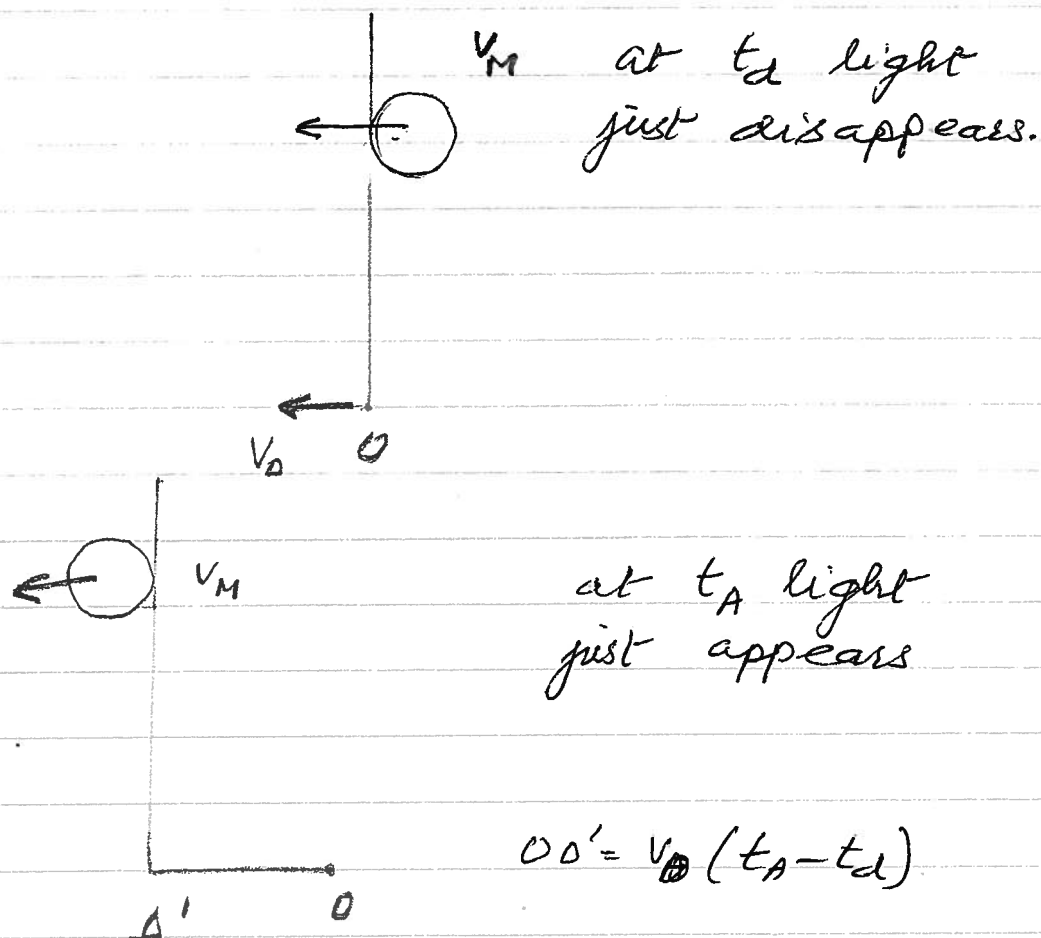 V_M at t_d light
just disappears.
V_0 0
V_M at t_A light
just appears
00' = V_0 (t_A - t_d)
0' 0